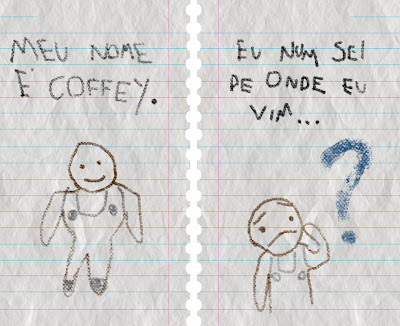 MEU NOME
É COFFEY.
EU NUM SEI
DE ONDE EU
VIM...
?